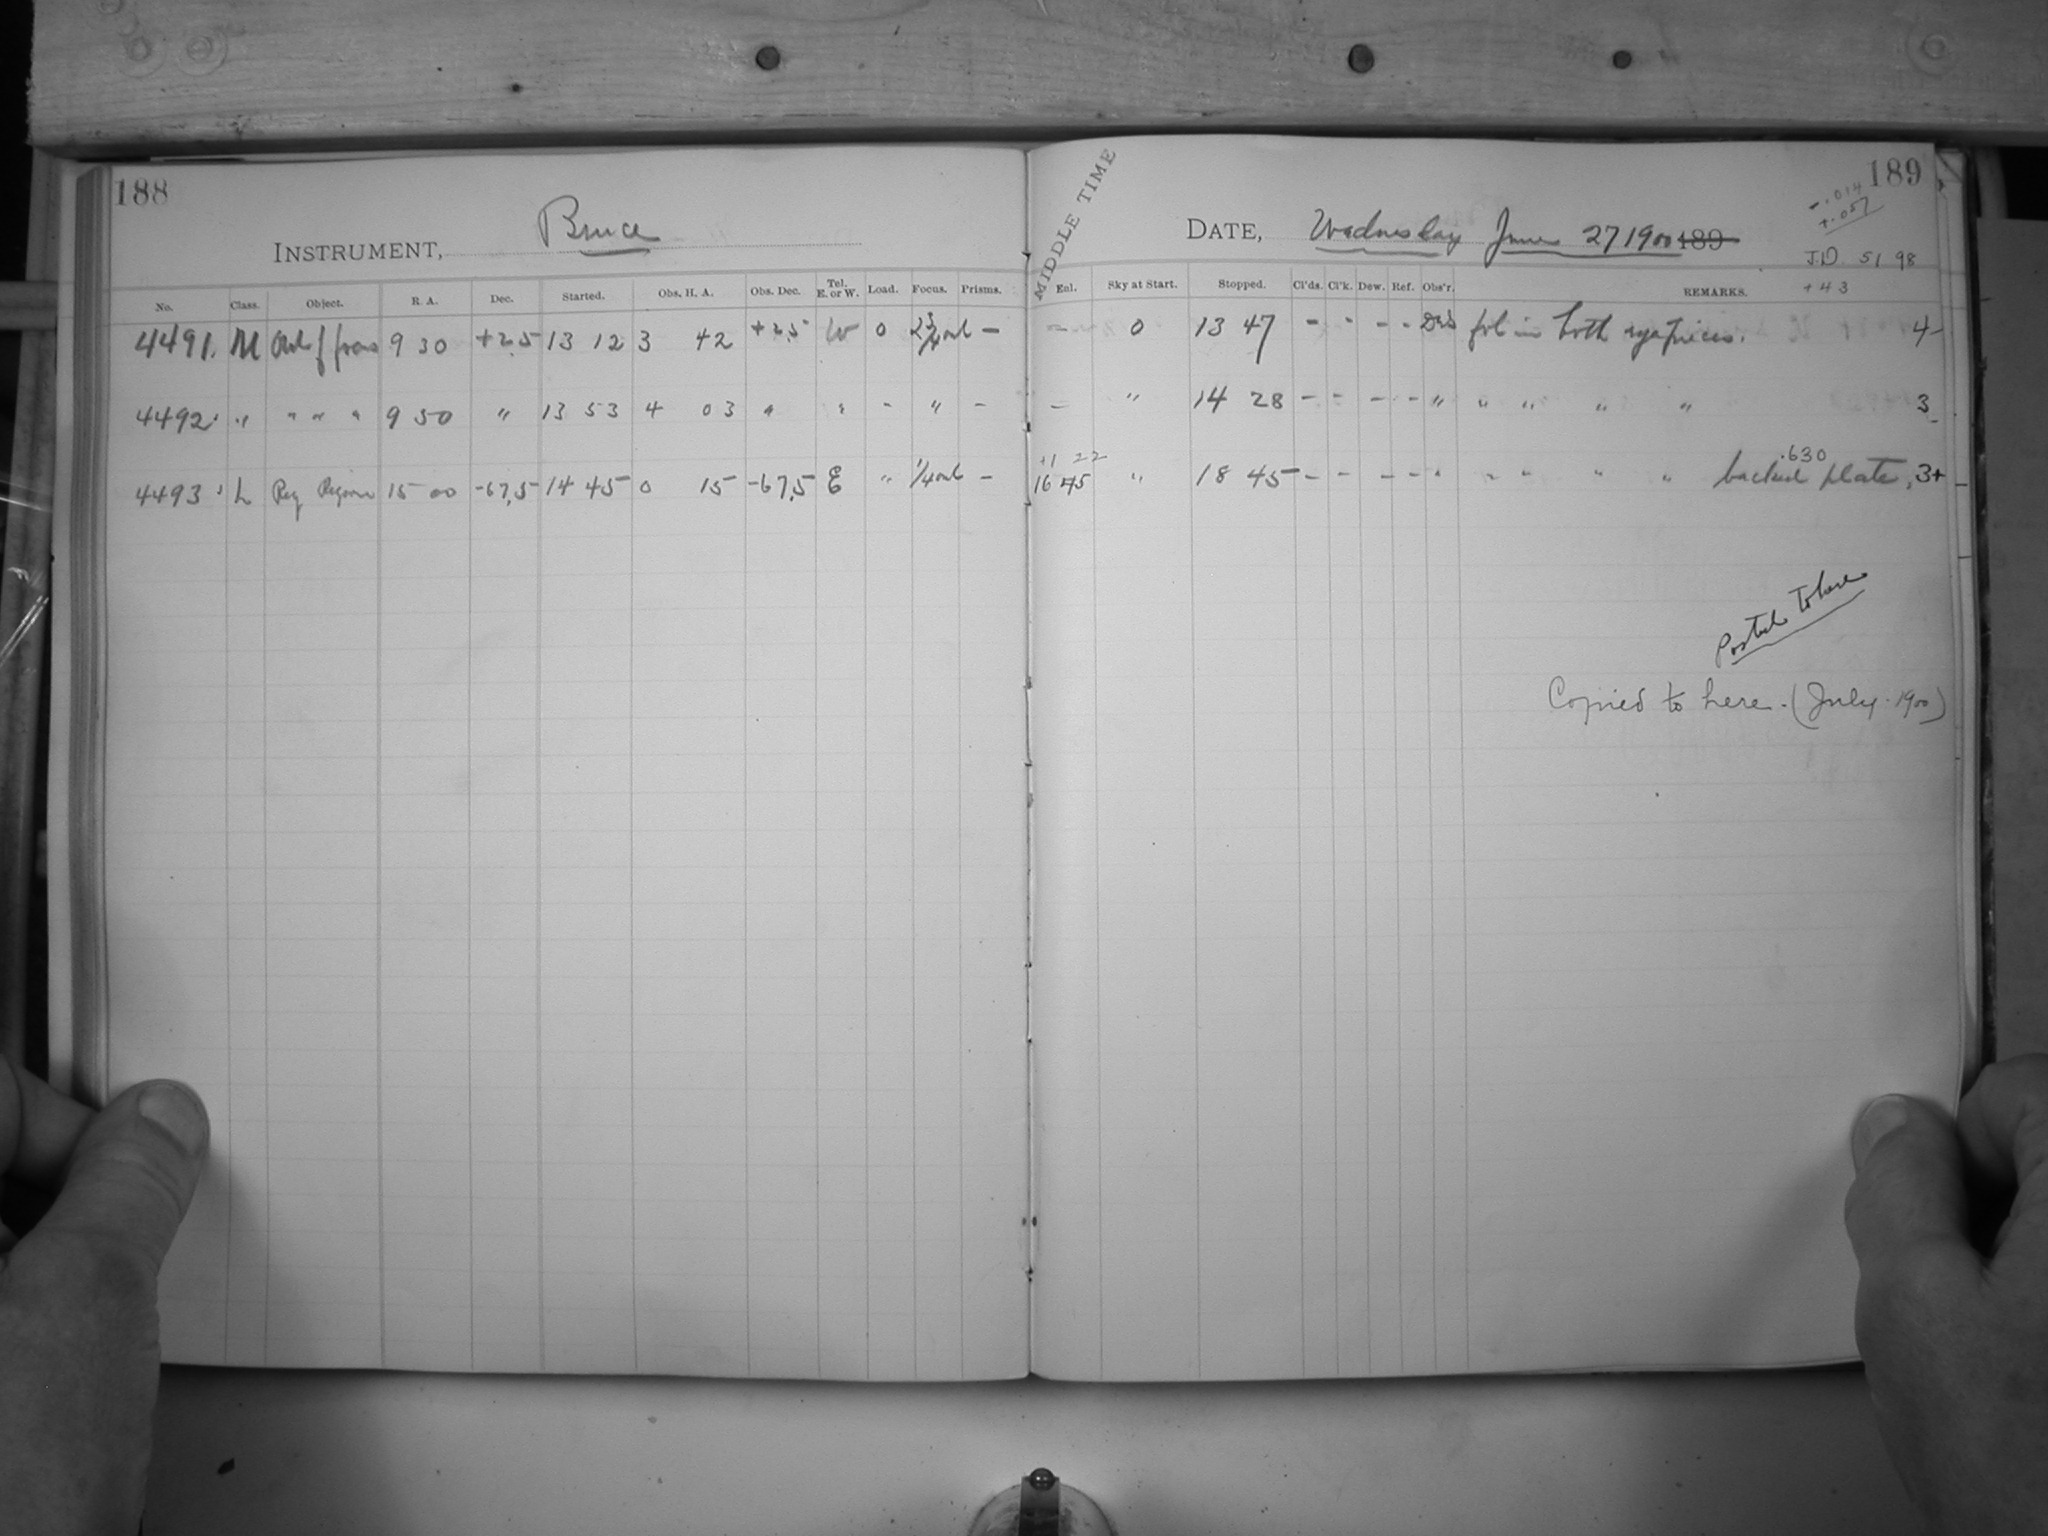 188
INSTRUMENT, Bruce
No. Class. Object. R. A. Dec. Started. Obs. H. A. Obs. Dec. Tel. E. or W. Load. Focus. Prisms.
4491. M out of focus 9 30 +2.5 13 12 3 42 +2.5 W 0 —
4492. " " " " 9 50 " 13 53 4 03 " " - " -
4493. L Reg Region 15 00 -67.5 14 45 0 15 -67.5 E " 1/4 out —
189
-.014
+.057
MIDDLE TIME
DATE, Wednesday June 27 1900 189
J.D. 51 98
+43
Enl. Sky at Start. Stopped. Cl'ds. Cl'k. Dew. Ref. Obs'r. REMARKS.
— 0 13 47 - - - - fol in both eyepieces. 4-
— " 14 28 - - - - " " " " " 3-
+1 22 .630
16 45 " 18 45 - - - - " " " " " backed plate, 3+
Posted to here
Copied to here. (July. 1900)